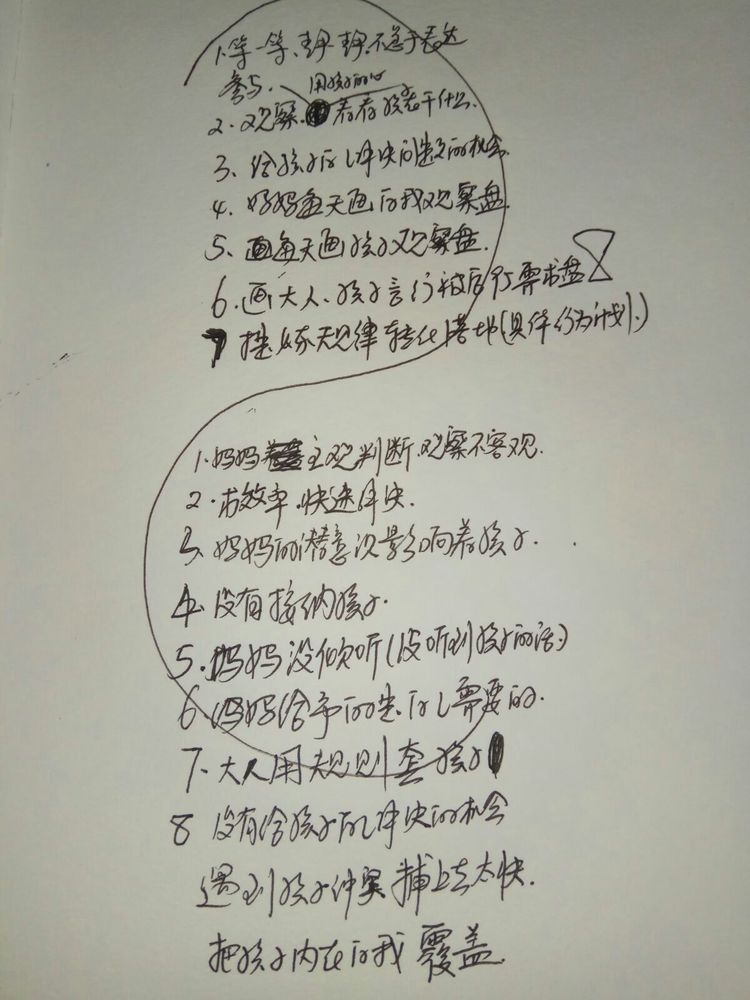 1.等一等、静静.不急于表达
参与.
用孩子的心
2.观察.看看孩子在干什么.
3、给孩子自己解决问题的机会.
4.妈妈每天画自我观察盘
5、每天画孩子观察盘.
6.画大人、孩子言行被后的需求盘
7 提炼规律转化落地(具体行为计划.)
1.妈妈主观判断.观察不客观.
2.求效率.快速解决.
3、妈妈的潜意识影响着孩子.
4.没有接纳孩子.
5.妈妈没倾听(没听到孩子的话)
6 妈妈给予的是自己需要的.
7.大人用规则套孩子
8 没有给孩子自己解决的机会
遇到孩子冲突 扑上去太快.
把孩子内在自我 覆盖